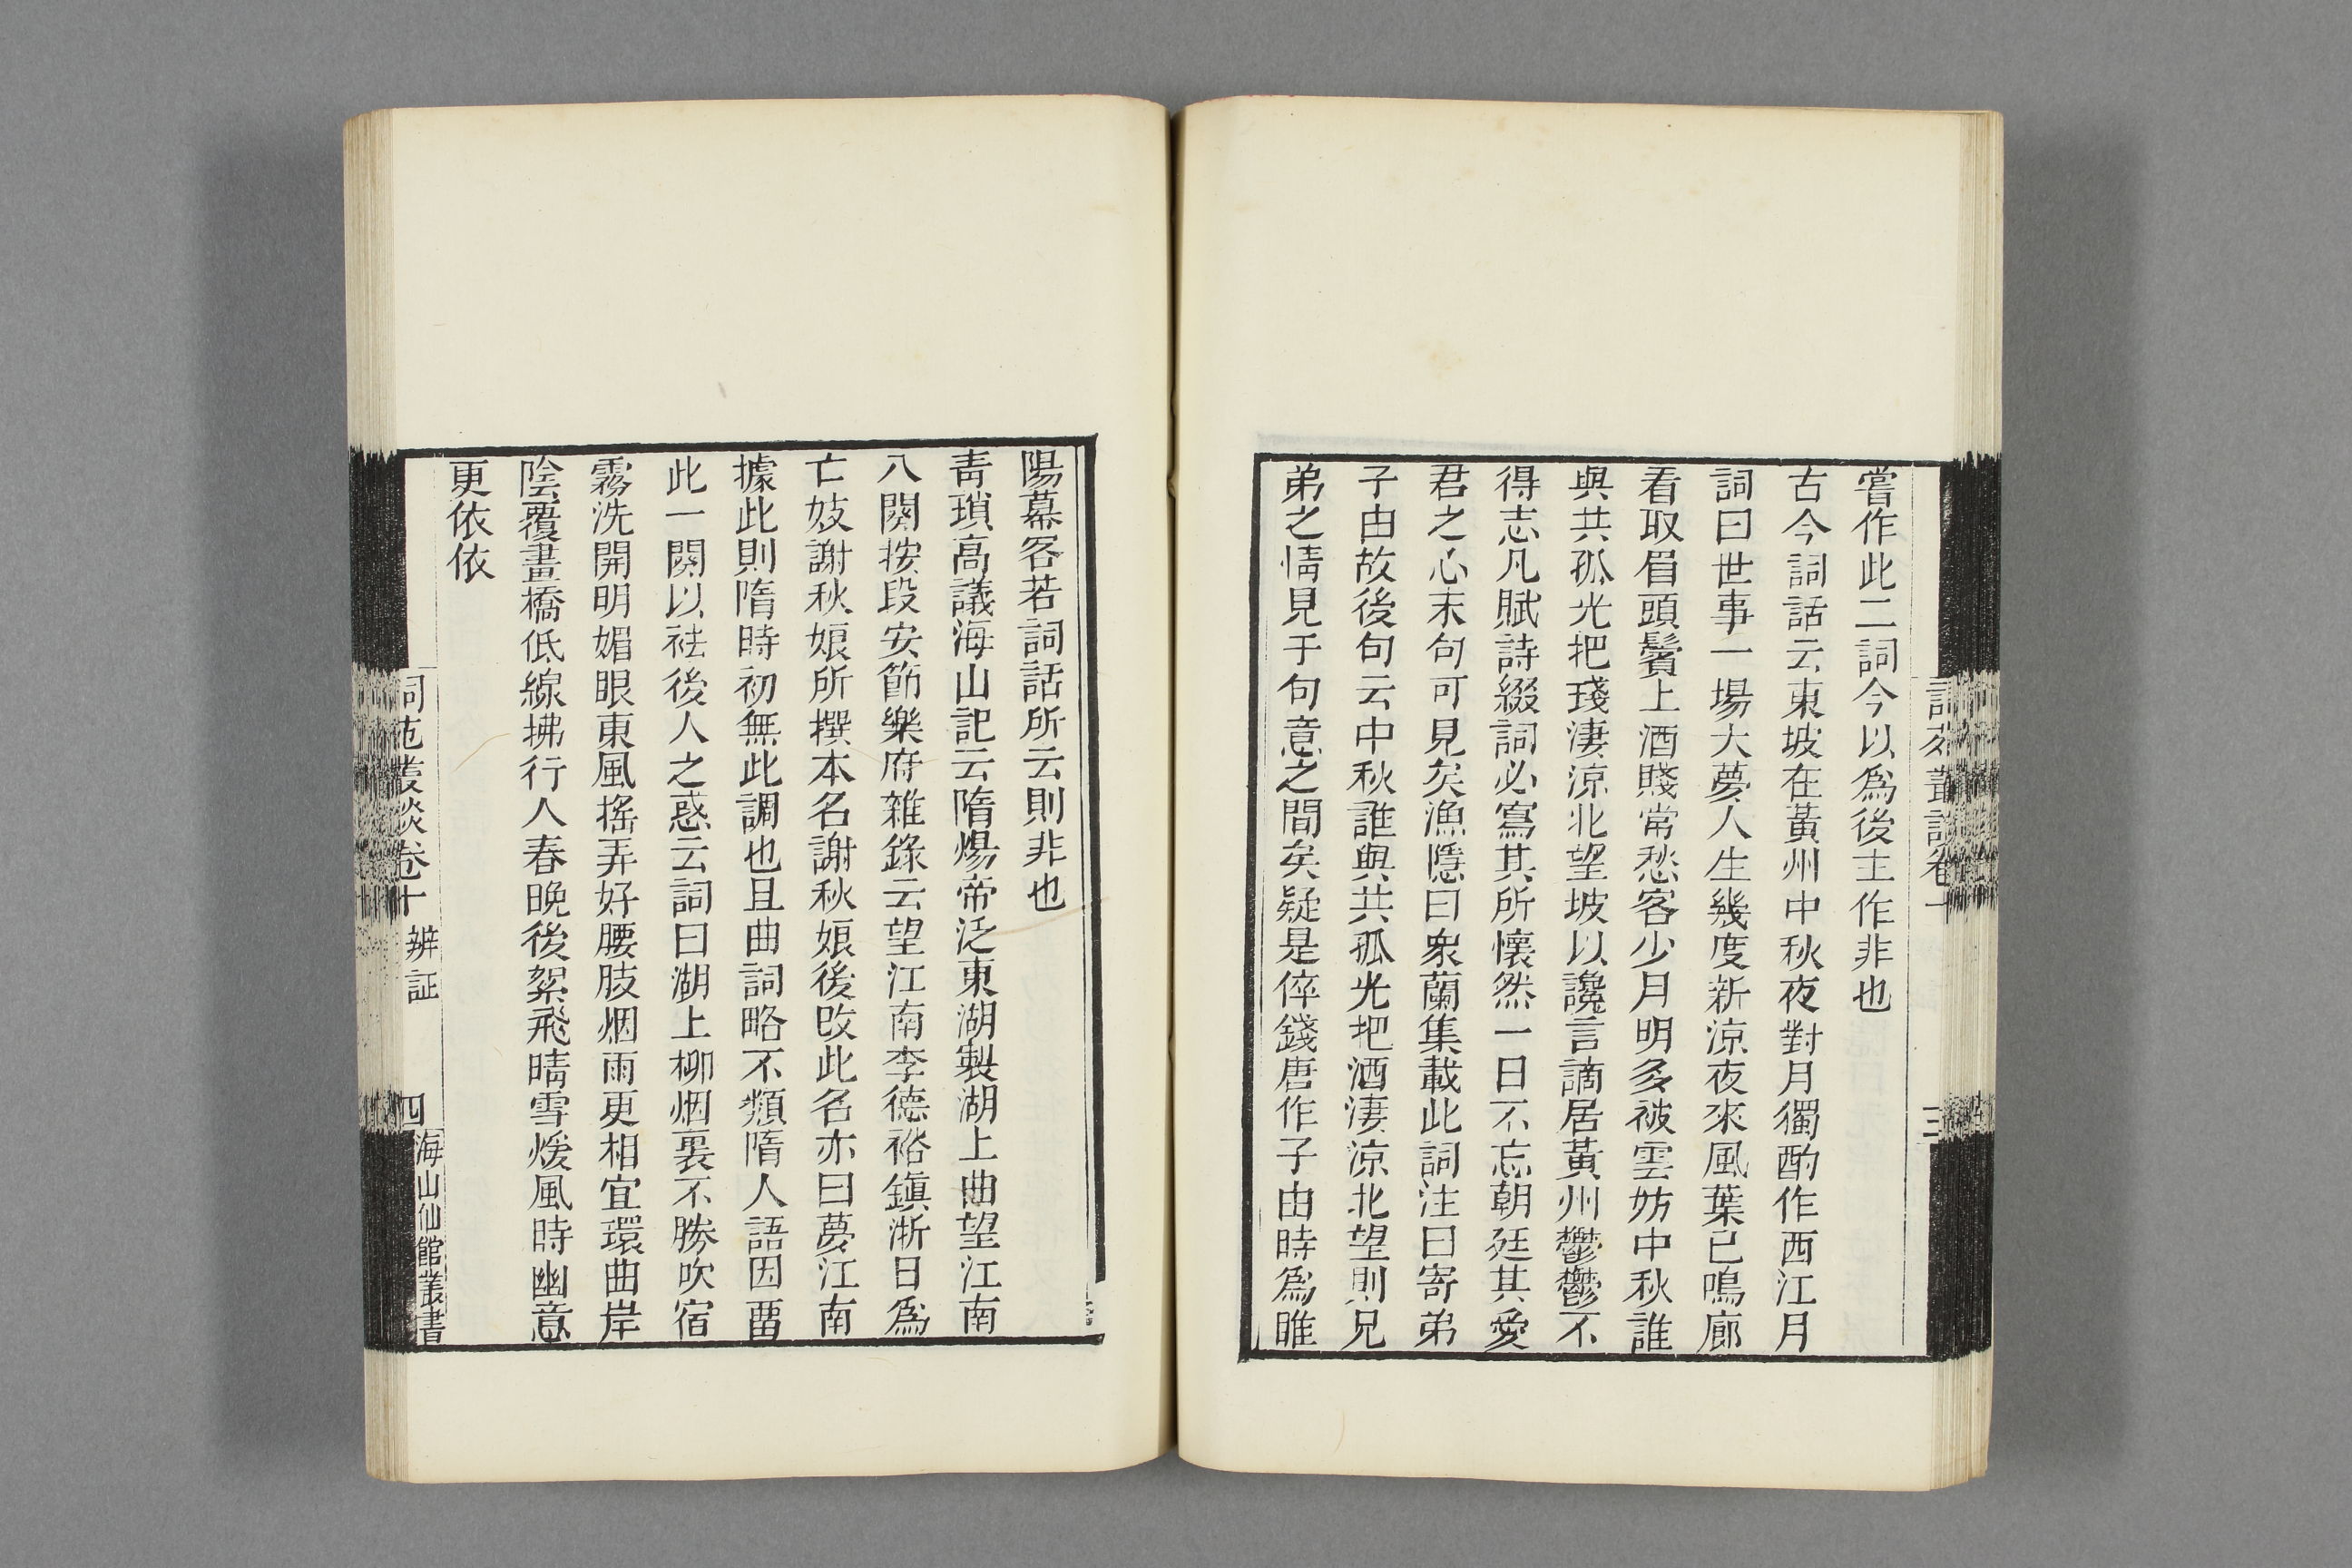 嘗作此二詞今以爲後主作非也
古今詞話云東坡在黃州中秋夜對月獨酌作西江月
詞曰世事一場大夢人生幾度新涼夜來風葉已鳴廊
看取眉頭鬢上酒賤常愁客少月明多被雲妨中秋誰
與共孤光把琖淒涼北望坡以讒言謫居黃州鬱鬱不
得志凡賦詩綴詞必寫其所懷然一日不忘朝廷其愛
君之心末句可見矣漁隱曰聚蘭集載此詞注曰寄弟
子由故後句云中秋誰與共孤光把酒淒涼北望則兄
弟之情見于句意之間矣疑是倅錢唐作子由時爲睢
陽幕客若詞話所云則非也
青瑣高議海山記云隋煬帝泛東湖製湖上曲望江南
八闋按段安節樂府雜錄云望江南李德裕鎮浙日爲
亡妓謝秋娘所撰本名謝秋娘後改此名亦曰夢江南
據此則隋時初無此調也且曲詞略不類隋人語因畱
此一闋以祛後人之惑云詞曰湖上柳烟裏不勝吹宿
霧洗開明媚眼東風搖弄好腰肢烟雨更相宜環曲岸
陰覆畫橋低線拂行人春晚後絮飛晴雪煖風時幽意
更依依
詞苑叢談卷十 辨証 四 海山仙館叢書